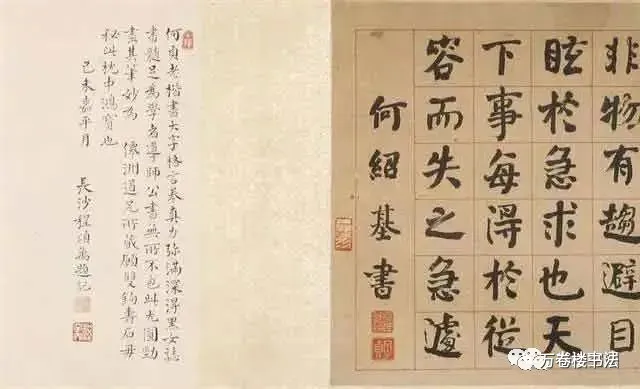 非物有趨避目
眩於急求也天
下事每得於從
容而失之急遽
何紹基書
何貞老楷書大字格言卷真力弥滿深得黑女誌
書髓足為學者導師公書無所不包此尤圓勁
盡其筆妙為 洲道兄所藏願雙鈎壽石毋
秘此枕中鴻寶也
己未嘉平月
長沙程頌萬題記
万卷楼书法